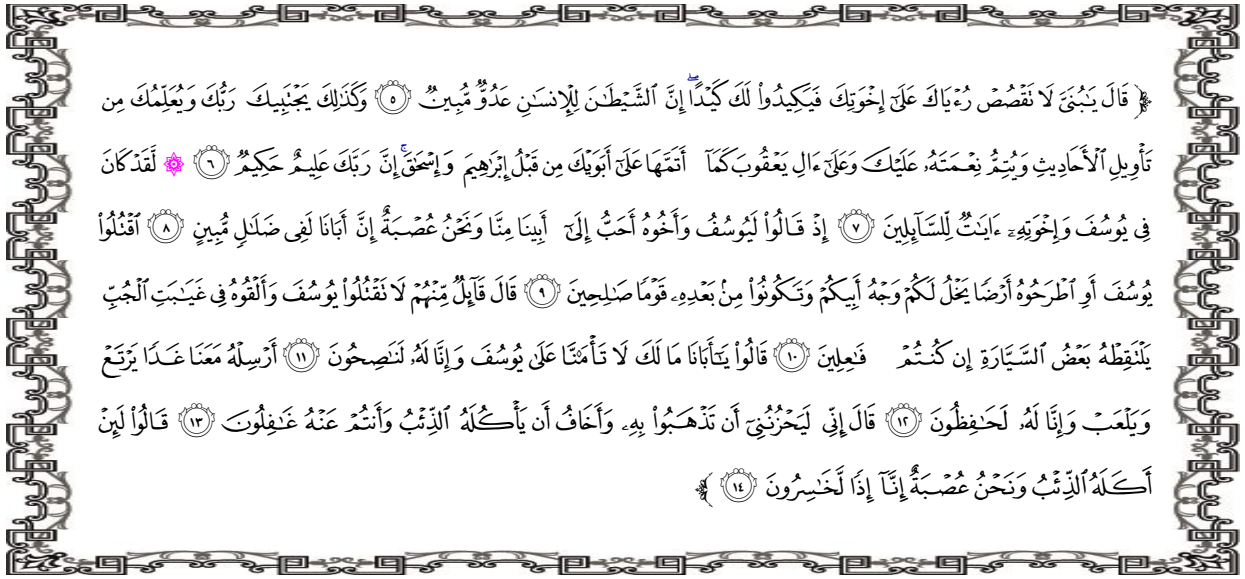 ﴿ قَالَ يَٰبُنَىَّ لَا تَقْصُصْ رُءْيَاكَ عَلَىٰٓ إِخْوَتِكَ فَيَكِيدُوا۟ لَكَ كَيْدًا ۖ إِنَّ ٱلشَّيْطَٰنَ لِلْإِنسَٰنِ عَدُوٌّ مُّبِينٌ ﴿٥﴾ وَكَذَٰلِكَ يَجْتَبِيكَ رَبُّكَ وَيُعَلِّمُكَ مِن
تَأْوِيلِ ٱلْأَحَادِيثِ وَيُتِمُّ نِعْمَتَهُۥ عَلَيْكَ وَعَلَىٰٓ ءَالِ يَعْقُوبَ كَمَآ أَتَمَّهَا عَلَىٰٓ أَبَوَيْكَ مِن قَبْلُ إِبْرَٰهِيمَ وَإِسْحَٰقَ ۚ إِنَّ رَبَّكَ عَلِيمٌ حَكِيمٌ ﴿٦﴾ ۞ لَّقَدْ كَانَ
فِى يُوسُفَ وَإِخْوَتِهِۦٓ ءَايَٰتٌ لِّلسَّآئِلِينَ ﴿٧﴾ إِذْ قَالُوا۟ لَيُوسُفُ وَأَخُوهُ أَحَبُّ إِلَىٰٓ أَبِينَا مِنَّا وَنَحْنُ عُصْبَةٌ إِنَّ أَبَانَا لَفِى ضَلَٰلٍ مُّبِينٍ ﴿٨﴾ ٱقْتُلُوا۟
يُوسُفَ أَوِ ٱطْرَحُوهُ أَرْضًا يَخْلُ لَكُمْ وَجْهُ أَبِيكُمْ وَتَكُونُوا۟ مِنۢ بَعْدِهِۦ قَوْمًا صَٰلِحِينَ ﴿٩﴾ قَالَ قَآئِلٌ مِّنْهُمْ لَا تَقْتُلُوا۟ يُوسُفَ وَأَلْقُوهُ فِى غَيَٰبَتِ ٱلْجُبِّ
يَلْتَقِطْهُ بَعْضُ ٱلسَّيَّارَةِ إِن كُنتُمْ فَٰعِلِينَ ﴿١٠﴾ قَالُوا۟ يَٰٓأَبَانَا مَا لَكَ لَا تَأْمَ۫نَّا عَلَىٰ يُوسُفَ وَإِنَّا لَهُۥ لَنَٰصِحُونَ ﴿١١﴾ أَرْسِلْهُ مَعَنَا غَدًا يَرْتَعْ
وَيَلْعَبْ وَإِنَّا لَهُۥ لَحَٰفِظُونَ ﴿١٢﴾ قَالَ إِنِّى لَيَحْزُنُنِىٓ أَن تَذْهَبُوا۟ بِهِۦ وَأَخَافُ أَن يَأْكُلَهُ ٱلذِّئْبُ وَأَنتُمْ عَنْهُ غَٰفِلُونَ ﴿١٣﴾ قَالُوا۟ لَئِنْ
أَكَلَهُ ٱلذِّئْبُ وَنَحْنُ عُصْبَةٌ إِنَّآ إِذًا لَّخَٰسِرُونَ ﴿١٤﴾ ﴾